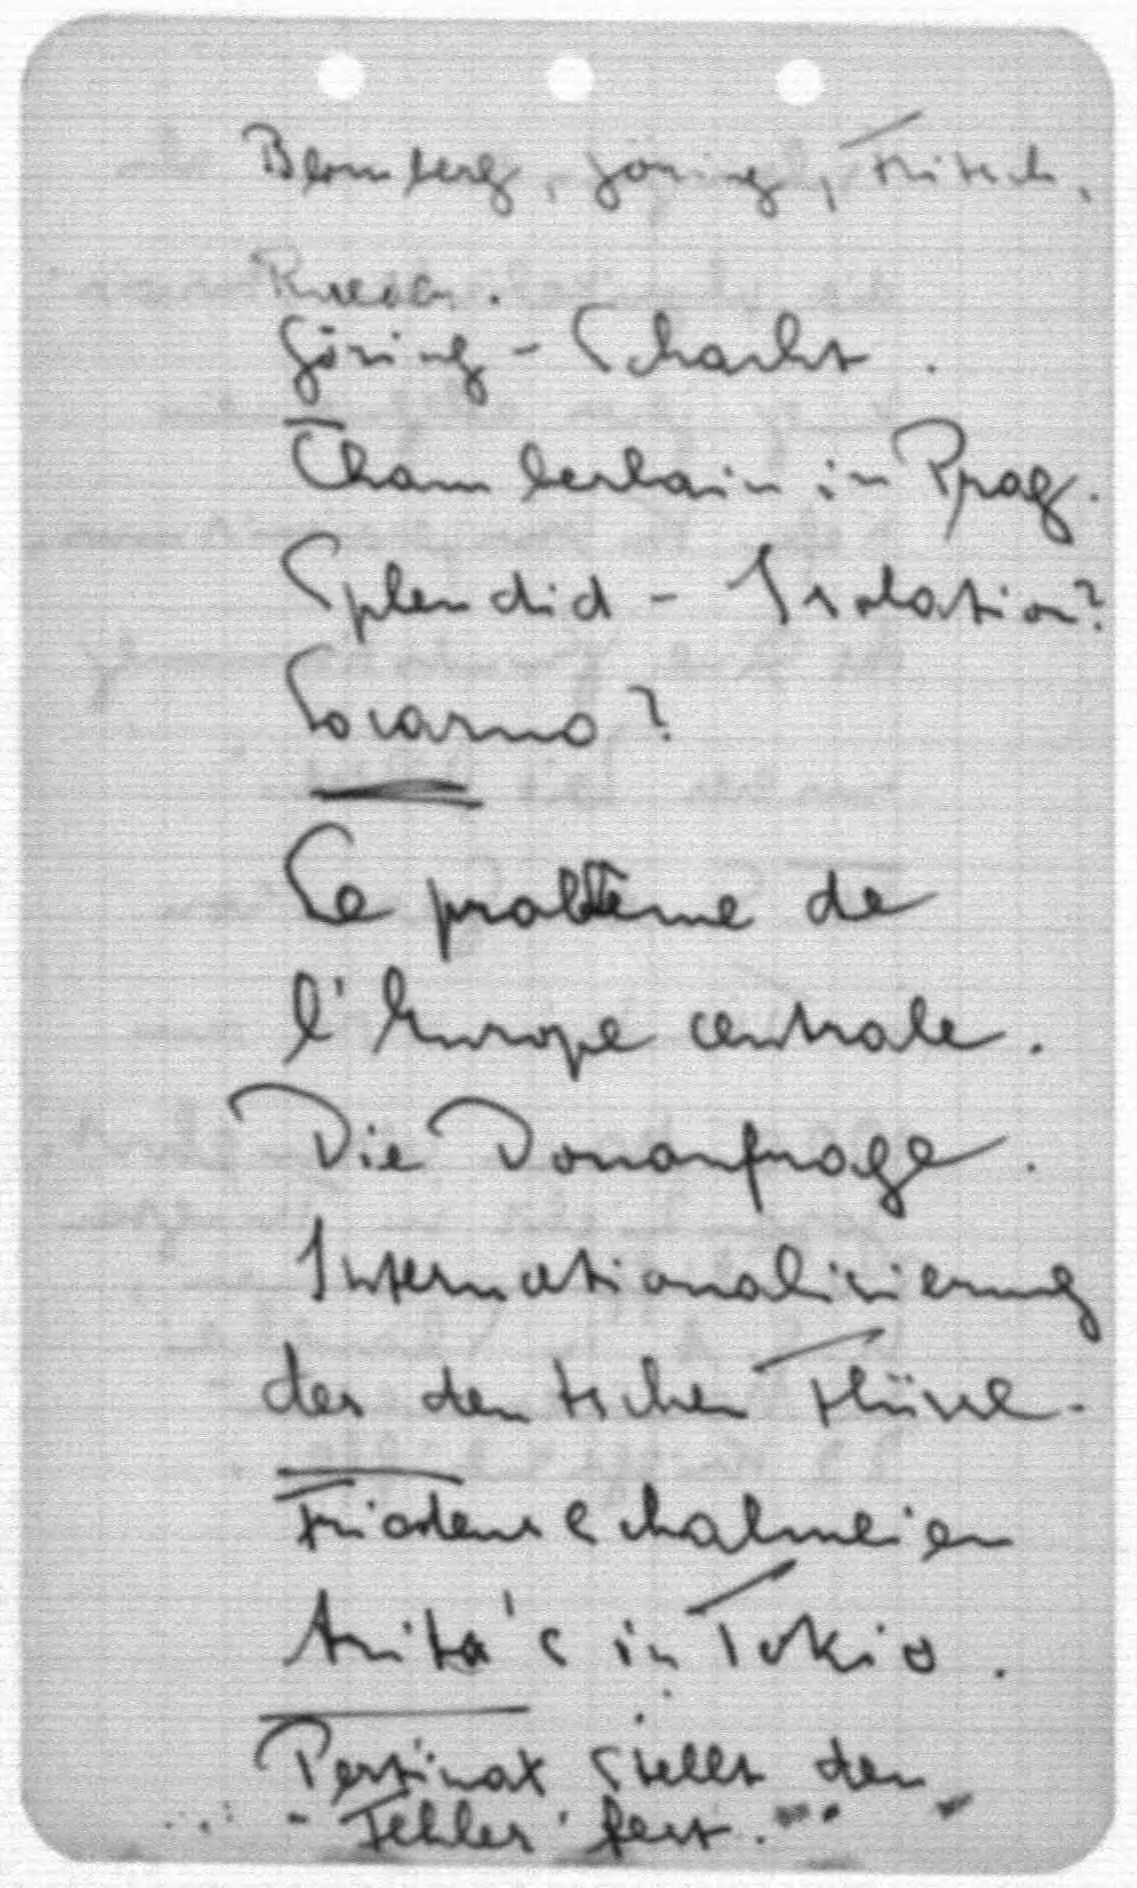 Blomberg, Göring, Fritsch,
Göring - Schacht.
Chamberlain in Prag.
Splendid - Isolation?
Locarno?
Le problème de
l'Europe centrale.
Die Donaufrage.
Internationalisierung
der deutschen Flüsse.
Friedensschalmeien
Arita's in Tokio.
Pertinax stellt den
Fehler fest.